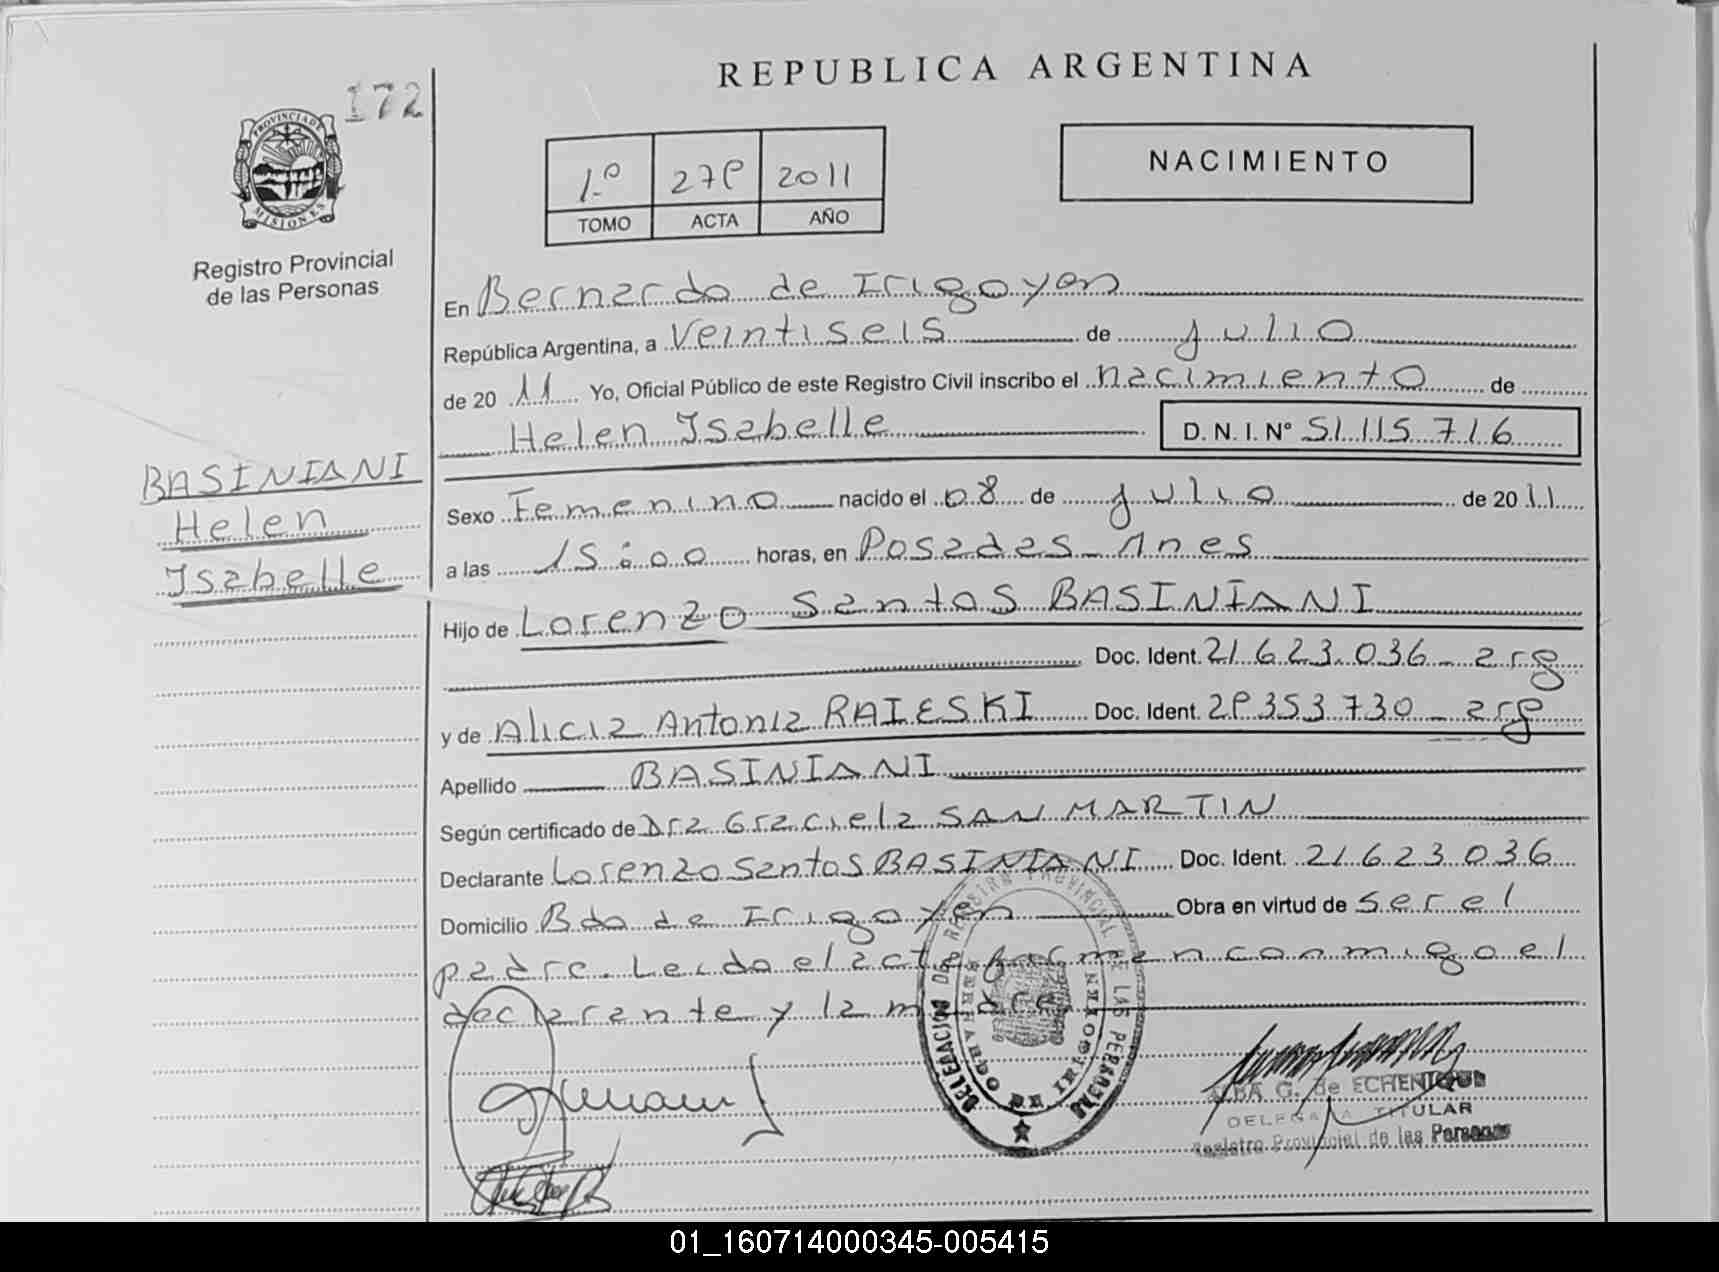 REPUBLICA ARGENTINA
172
PROVINCIA DE
MISIONES
Registro Provincial
de las Personas
1º 279 2011
TOMO ACTA AÑO
NACIMIENTO
En Bernardo de Irigoyen
República Argentina, a Veintiseis de julio
de 20 11 Yo, Oficial Público de este Registro Civil inscribo el nacimiento de
Helen Isabelle D. N. I. N° 51.115.716
BASINIANI
Helen
Isabelle
Sexo Femenino nacido el 08 de julio de 2011
a las 15:00 horas, en Posadas - Mnes
Hijo de Lorenzo Santos BASINIANI
Doc. Ident. 21.623.036 - arg
y de Alicia Antonia RAIESKI Doc. Ident. 29.353.730 - arg
Apellido BASINIANI
Según certificado de Dra Graciela SAN MARTIN
Declarante Lorenzo Santos BASINIANI Doc. Ident. 21.623.036
Domicilio Bdo de Irigoyen Obra en virtud de ser el
padre. Leida el acta firman conmigo el
declarante y la madre
DELEGACION DEL REGISTRO PROVINCIAL DE LAS PERSONAS
BERNARDO DE IRIGOYEN
ALBA G. de ECHENIQUE
DELEGADA TITULAR
Registro Provincial de las Personas
01_160714000345-005415